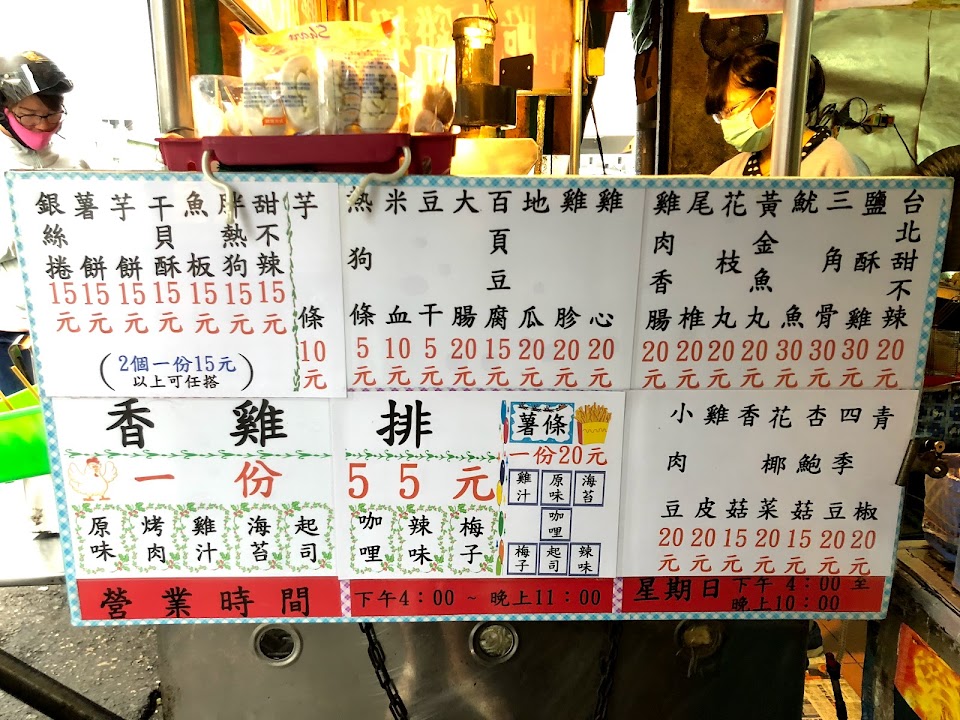 銀絲捲15元
薯餅15元
芋餅15元
干貝酥15元
魚板15元
胖熱狗15元
甜不辣15元
(2個一份15元
以上可任搭)
芋條10元
熱狗條5元
米血10元
豆干5元
大腸20元
百頁豆腐15元
地瓜20元
雞胗20元
雞心20元
雞肉香腸20元
尾椎20元
花枝丸20元
黃金魚丸20元
魷魚30元
三角骨30元
鹽酥雞30元
台北甜不辣20元
香雞排
一份55元
原味
烤肉
雞汁
海苔
起司
咖哩
辣味
梅子
薯條
一份20元
雞汁
原味
海苔
咖哩
梅子
起司
辣味
小肉豆20元
雞皮20元
香菇15元
花椰菜20元
杏鮑菇15元
四季豆20元
青椒20元
營業時間
下午4：00 ~ 晚上11：00
星期日 下午 4：00 至
晚上10：00